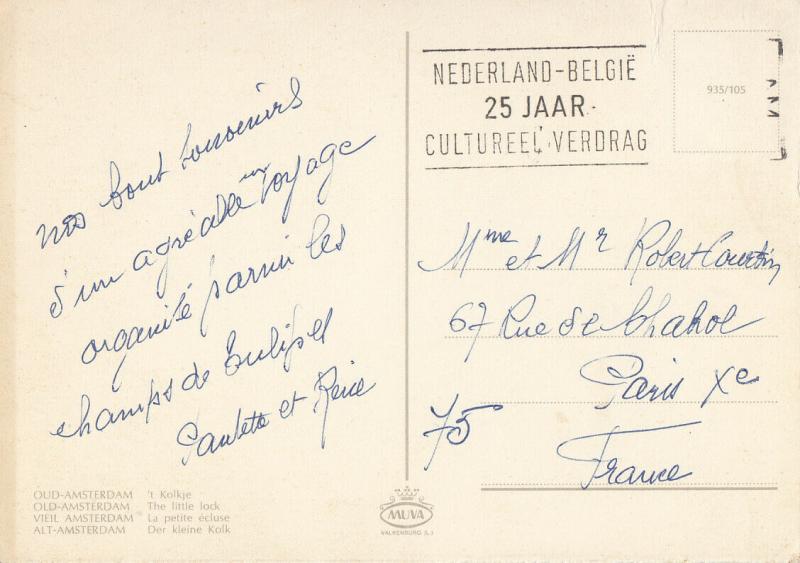 nos bons souvenirs
d'un agréable voyage
organisé parmi les
champs de Tulipes
Paulette et René
OUD-AMSTERDAM 't Kolkje
OLD-AMSTERDAM The little lock
VIEIL AMSTERDAM La petite écluse
ALT-AMSTERDAM Der kleine Kolk
MUVA
VALKENBURG (L.)
NEDERLAND-BELGIË
25 JAAR
CULTUREEL VERDRAG
935/105
AM
Mme et Mr Robert Courtin
67 Rue de Chabrol
Paris Xe
75
France